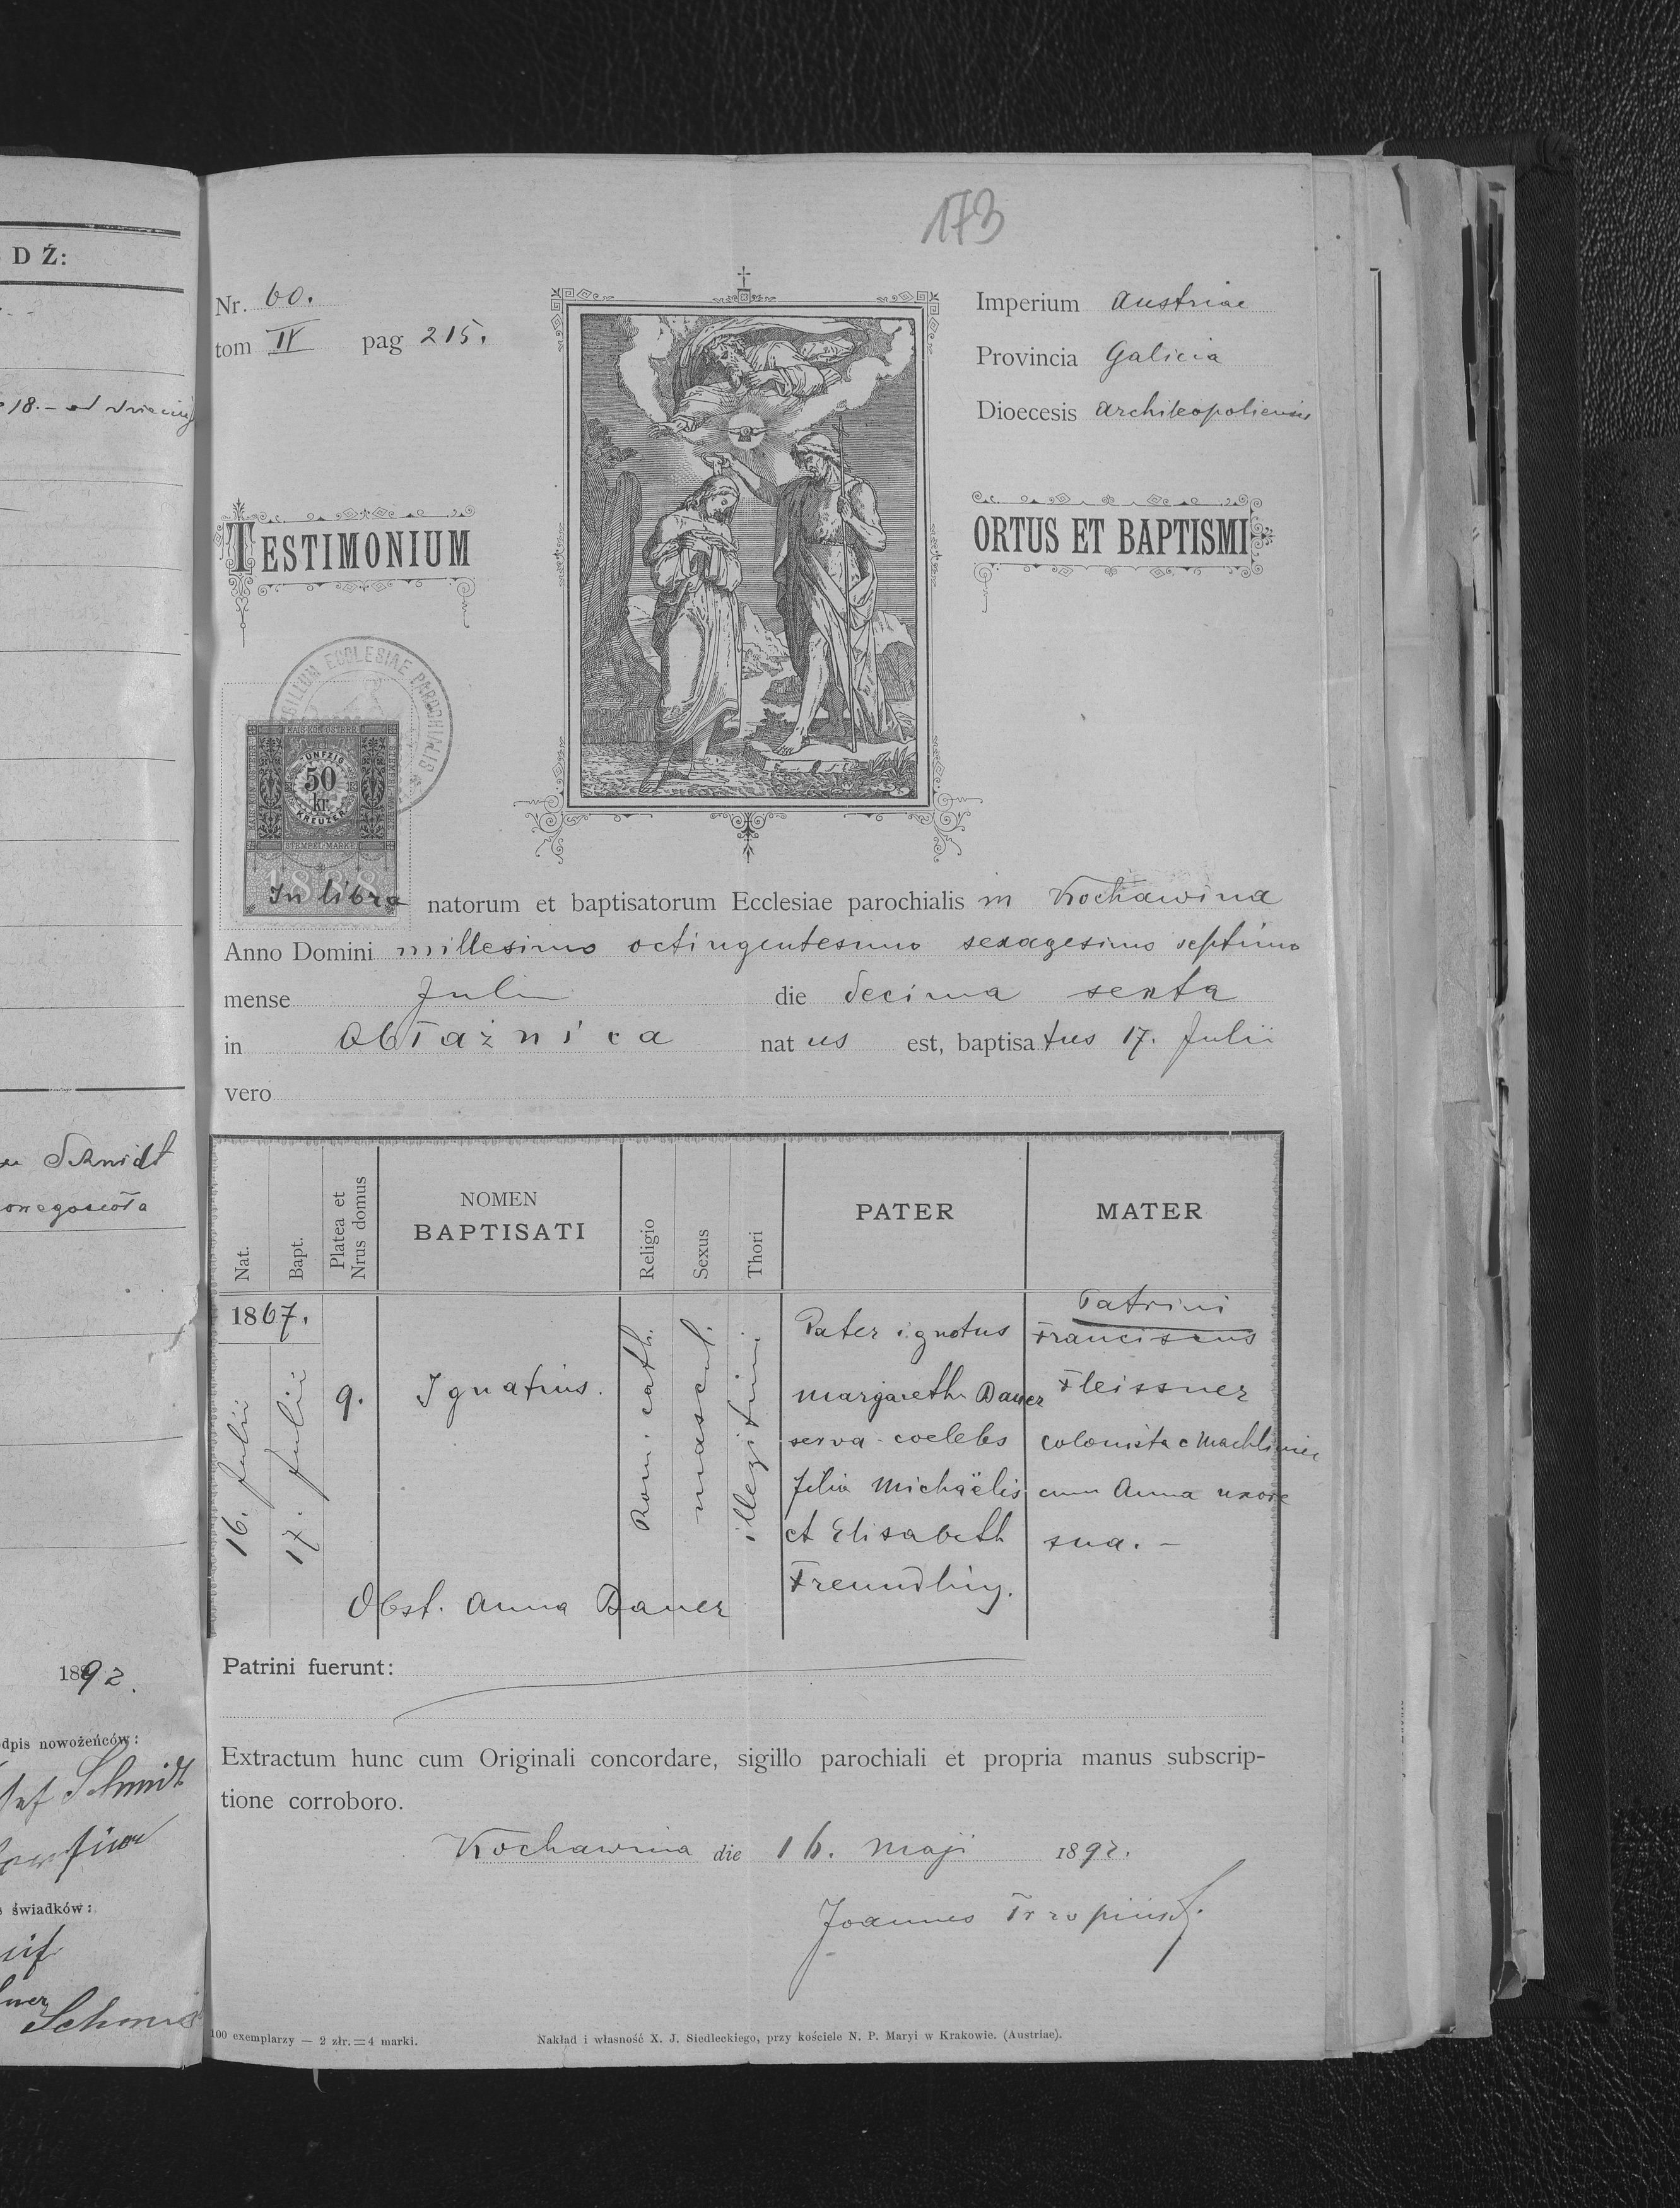 DŹ:
18.
Schmidt
1892.
odpis nowożeńców:
Schmidt
świadków:
173
Nr. 60.
tom IV pag 215.
Imperium Austriae
Provincia Galicia
Dioecesis Archileopoliensis
TESTIMONIUM
ORTUS ET BAPTISMI
ECCLESIAE PAROCHIALIS
KAIS. KÖN. ÖSTERR.
FÜNFZIG
50
kr.
KREUZER
STEMPEL-MARKE
1888
In libro natorum et baptisatorum Ecclesiae parochialis in Kochawina
Anno Domini millesimo octingentesimo sexagesimo septimo
mense Julii die decima sexta
in Obłaźnica natus est, baptisatus 17. Julii
vero
Nat.
Bapt.
Platea et
Nrus domus
NOMEN
BAPTISATI
Religio
Sexus
Thori
PATER
MATER
1867.
16. Julii
17. Julii
9.
Ignatius.
Rom. cath.
mascul.
illegitimi.
Pater ignotus
Margareth Bauer
serva coelebs
filia Michaëlis
et Elisabeth
Freundling.
Patrini
Franciscus
Fleissner
colonista e Machliniec
cum Anna uxore
sua. -
Obst. Anna Bauer
Patrini fuerunt:
Extractum hunc cum Originali concordare, sigillo parochiali et propria manus subscrip-
tione corroboro.
Kochawina die 16. Maji 1892.
Joannes
100 exemplarzy — 2 złr. = 4 marki.
Nakład i własność X. J. Siedleckiego, przy kościele N. P. Maryi w Krakowie. (Austriae).